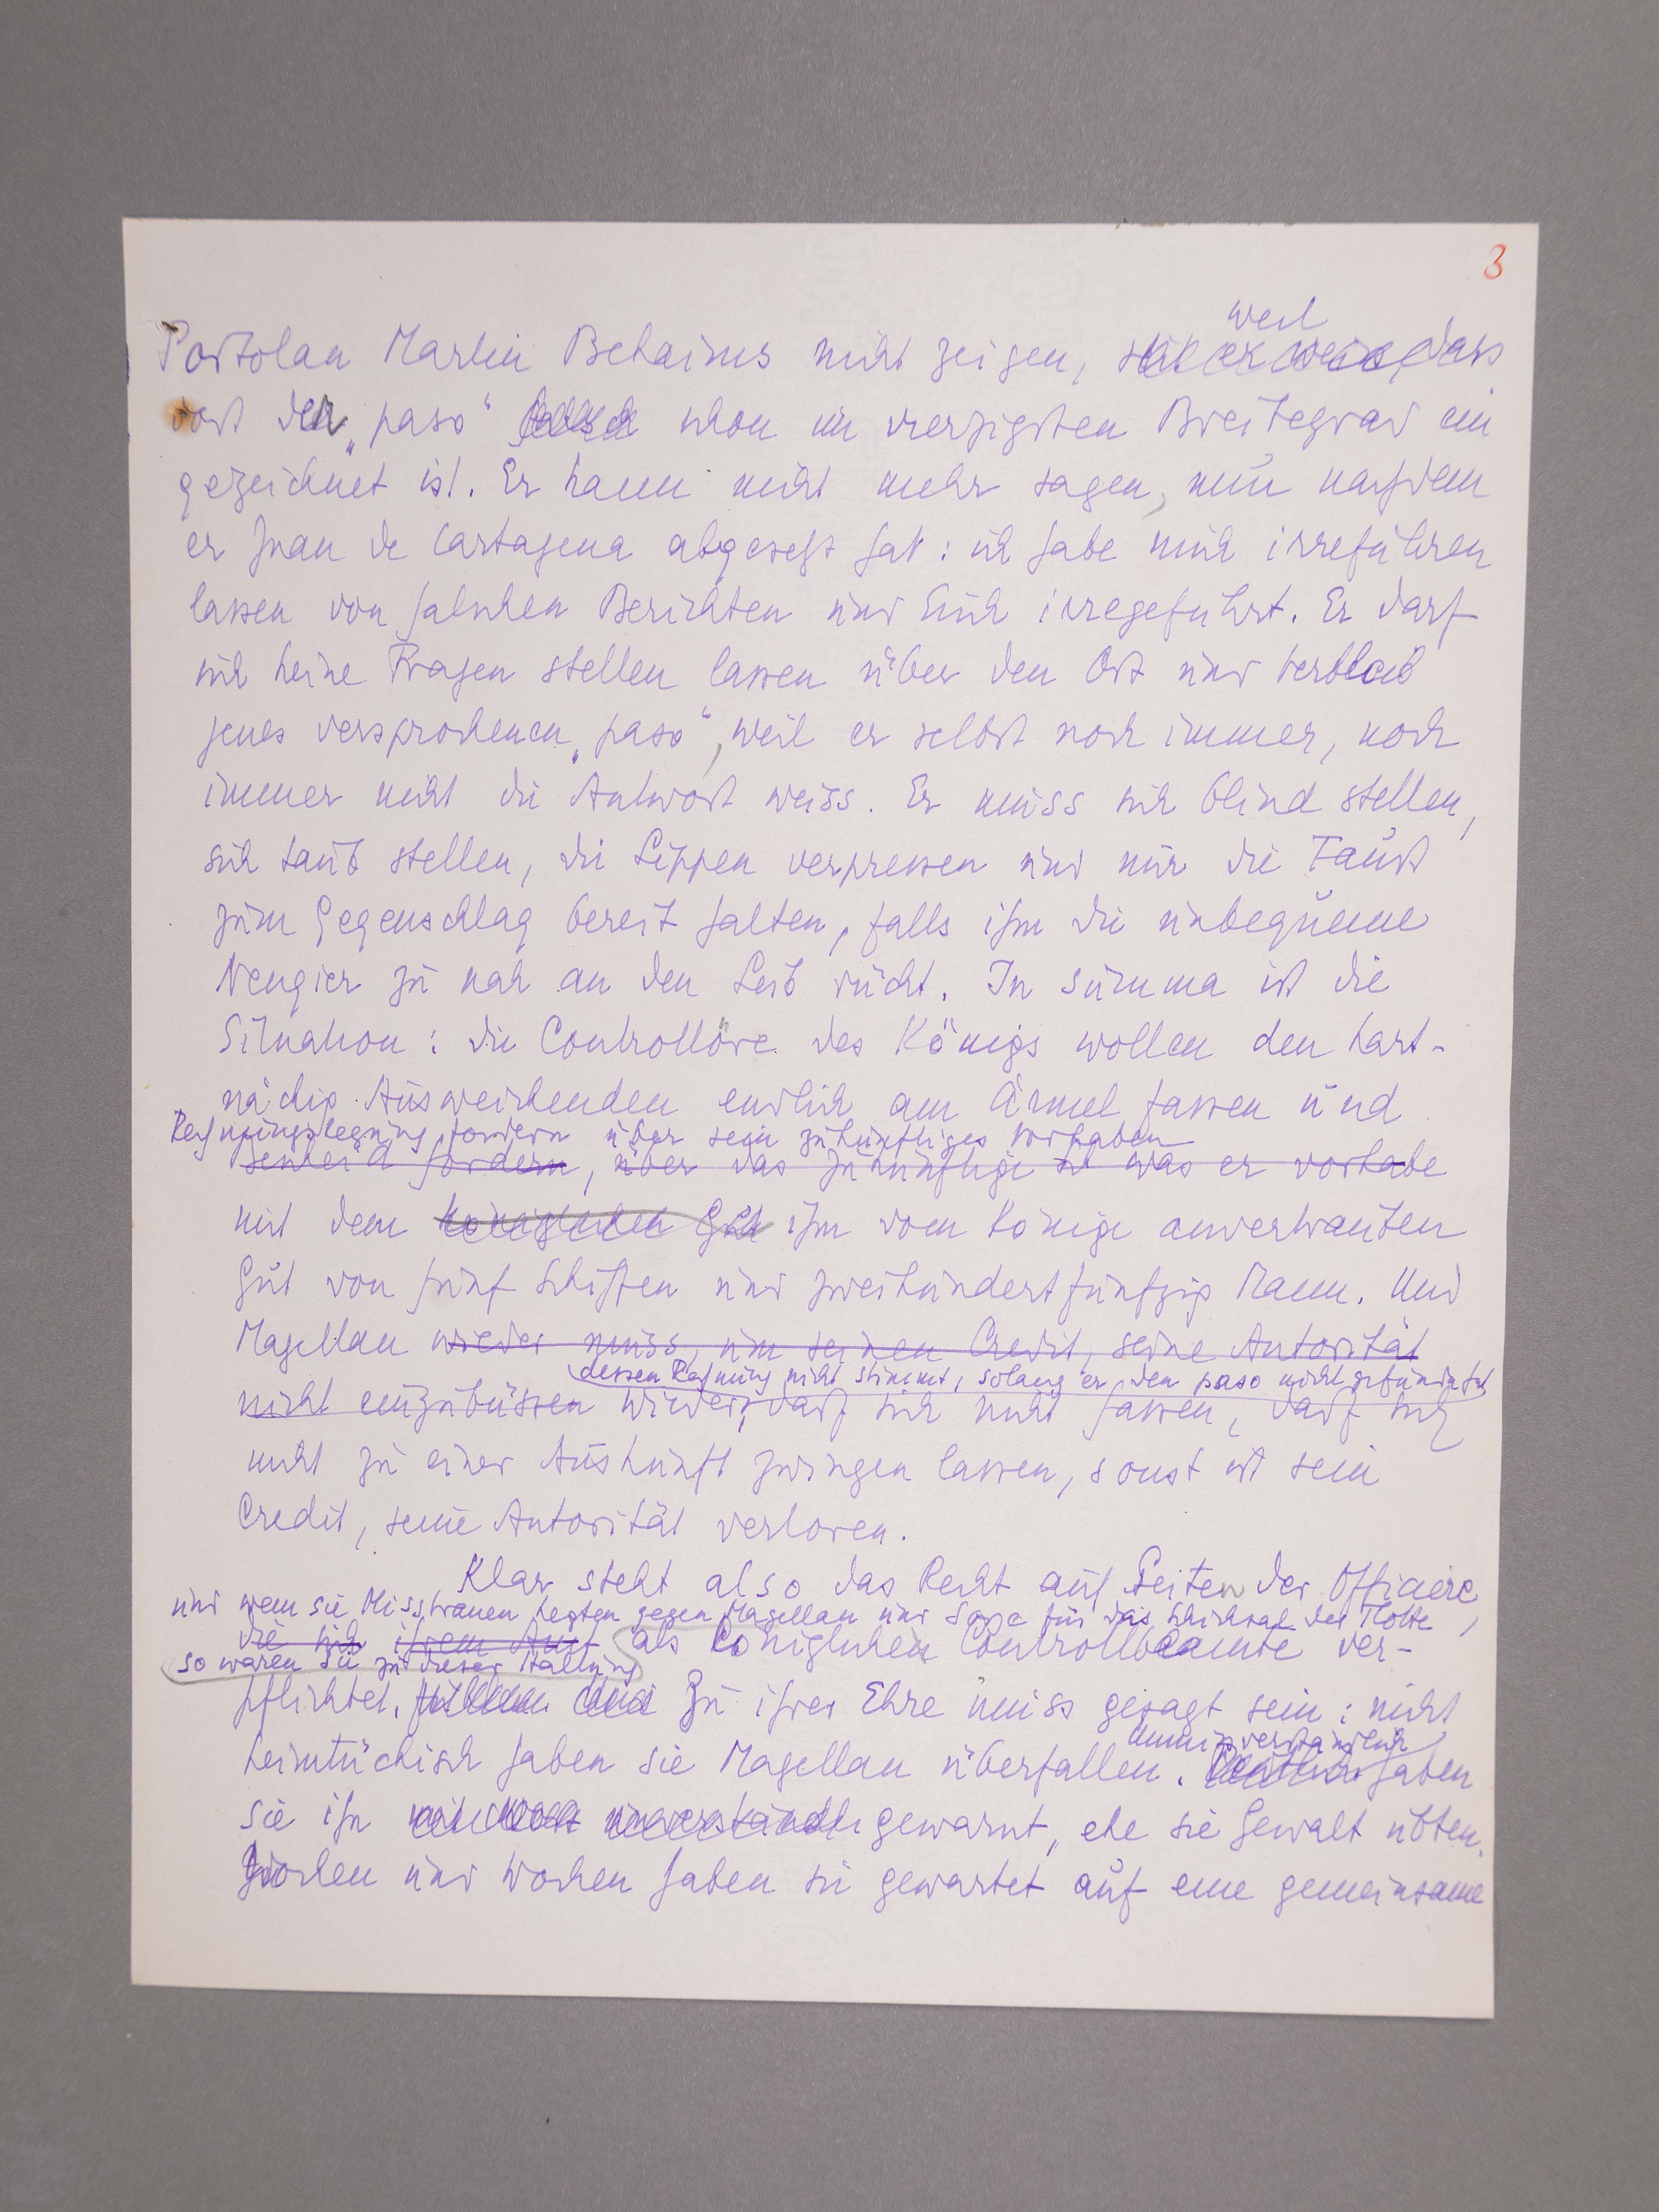 3
weil
Portolan Martin Behaims nicht zeigen, weil er weiss, dass
dort der „paso“ schon im vierzigsten Breitegrad ein
gezeichnet ist. Er kann nicht mehr sagen, nun nachdem
er Juan de Cartagena abgesetzt hat: ich habe mich irreführen
lassen von falschen Berichten und Euch irregeführt. Er darf
sich keine Fragen stellen lassen über den Ort und Verbleib
jenes versprochenen „paso“, weil er selbst noch immer, noch
immer nicht die Antwort weiss. Er muss sich blind stellen,
sich taub stellen, die Lippen verpressen und nur die Faust
zum Gegenschlag bereit halten, falls ihm die unbequeme
Neugier zu nah an den Leib rückt. In summa ist die
Situation: die Controllöre des Königs wollen den hart-
näckig Ausweichenden endlich am Ärmel fassen und
Rechnungslegung fordern über sein zukünftiges Vorhaben
fordern, über das zukünftige was er vorhabe
mit dem königlichen Gut ihm vom Könige anvertrauten
Gut von fünf Schiffen und zweihundertfünfzig Mann. Und
Magellan wieder muss, um seinen Credit, seine Autorität
dessen Rechnung nicht stimmt, solang er den paso nicht gefunden hat
nicht einzubüssen wieder, darf sich nicht fassen, darf sich
nicht zu einer Auskunft zwingen lassen, sonst ist sein
Credit, seine Autorität verloren.
Klar steht also das Recht auf Seiten der Officiere,
und wenn sie Misstrauen hegten gegen Magellan und Sorge für das Schicksal der Flotte,
die sich ihrem Amt als königlichen Controllbeamte ver-
so waren sie zu dieser Haltung
pflichtet. Zu ihrer Ehre muss gesagt sein: nicht
heimtückisch haben sie Magellan überfallen. Deutlich haben
unmissverständlich
sie ihn gewarnt, ehe sie Gewalt übten.
Wochen und Wochen haben sie gewartet auf eine gemeinsame